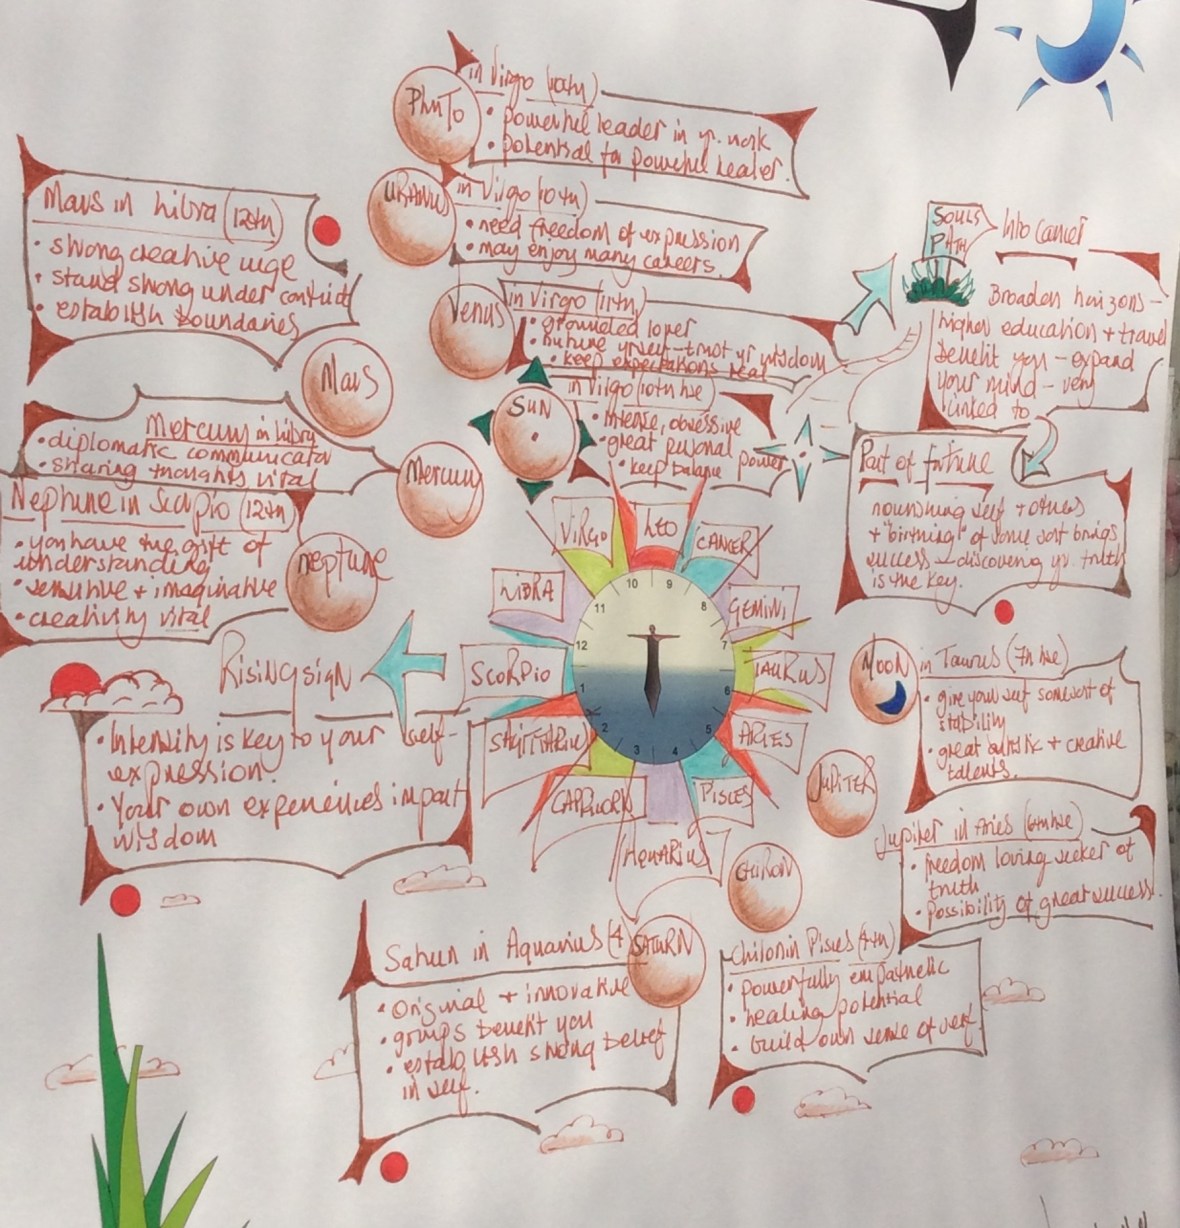 PLUTO
in Virgo (10th)
• powerful leader in yr. work
• potential for powerful healer.
URANUS
in Virgo (10th)
• need freedom of expression
• may enjoy many careers.
Venus
in Virgo (11th)
• grounded lover
• nurture yrself - trust yr wisdom
• keep expectations real
SUN
in Virgo (10th hse)
• intense, obsessive
• great personal power
• keep balance
Mars in Libra (12th)
• strong creative urge
• stand strong under conflict
• establish boundaries
Mars
Mercury in Libra
• diplomatic communicator
• sharing thoughts vital
Mercury
Neptune in Scorpio (12th)
• you have the gift of
understanding
• sensitive + imaginative
• creativity vital
neptune
SOULS
PATH
Into Cancer
Broaden horizons -
higher education + travel
benefit you - expand
your mind - very
linked to
Part of fortune
nourishing self + others
+ "birthing" of some sort brings
success - discovering yr. truth
is the key.
VIRGO
LEO
CANCER
LIBRA
GEMINI
SCORPIO
TAURUS
SAGITTARIUS
ARIES
CAPRICORN
PISCES
AQUARIUS
10
9
11
8
12
7
1
6
2
5
3
4
Rising sign
• Intensity is key to your self-
expression.
• Your own experiences impart
wisdom
MOON
in Taurus (7th hse)
• give yourself some sort of
stability
• great artistic + creative
talents.
JUPITER
Jupiter in Aries (6th hse)
• freedom loving seeker of
truth
• Possibility of great success.
CHIRON
Chiron in Pisces (4th)
• powerfully empathetic
• healing potential
• build own sense of self.
SATURN
Saturn in Aquarius (4
• Original + innovative
• groups benefit you
• establish strong belief
in self.